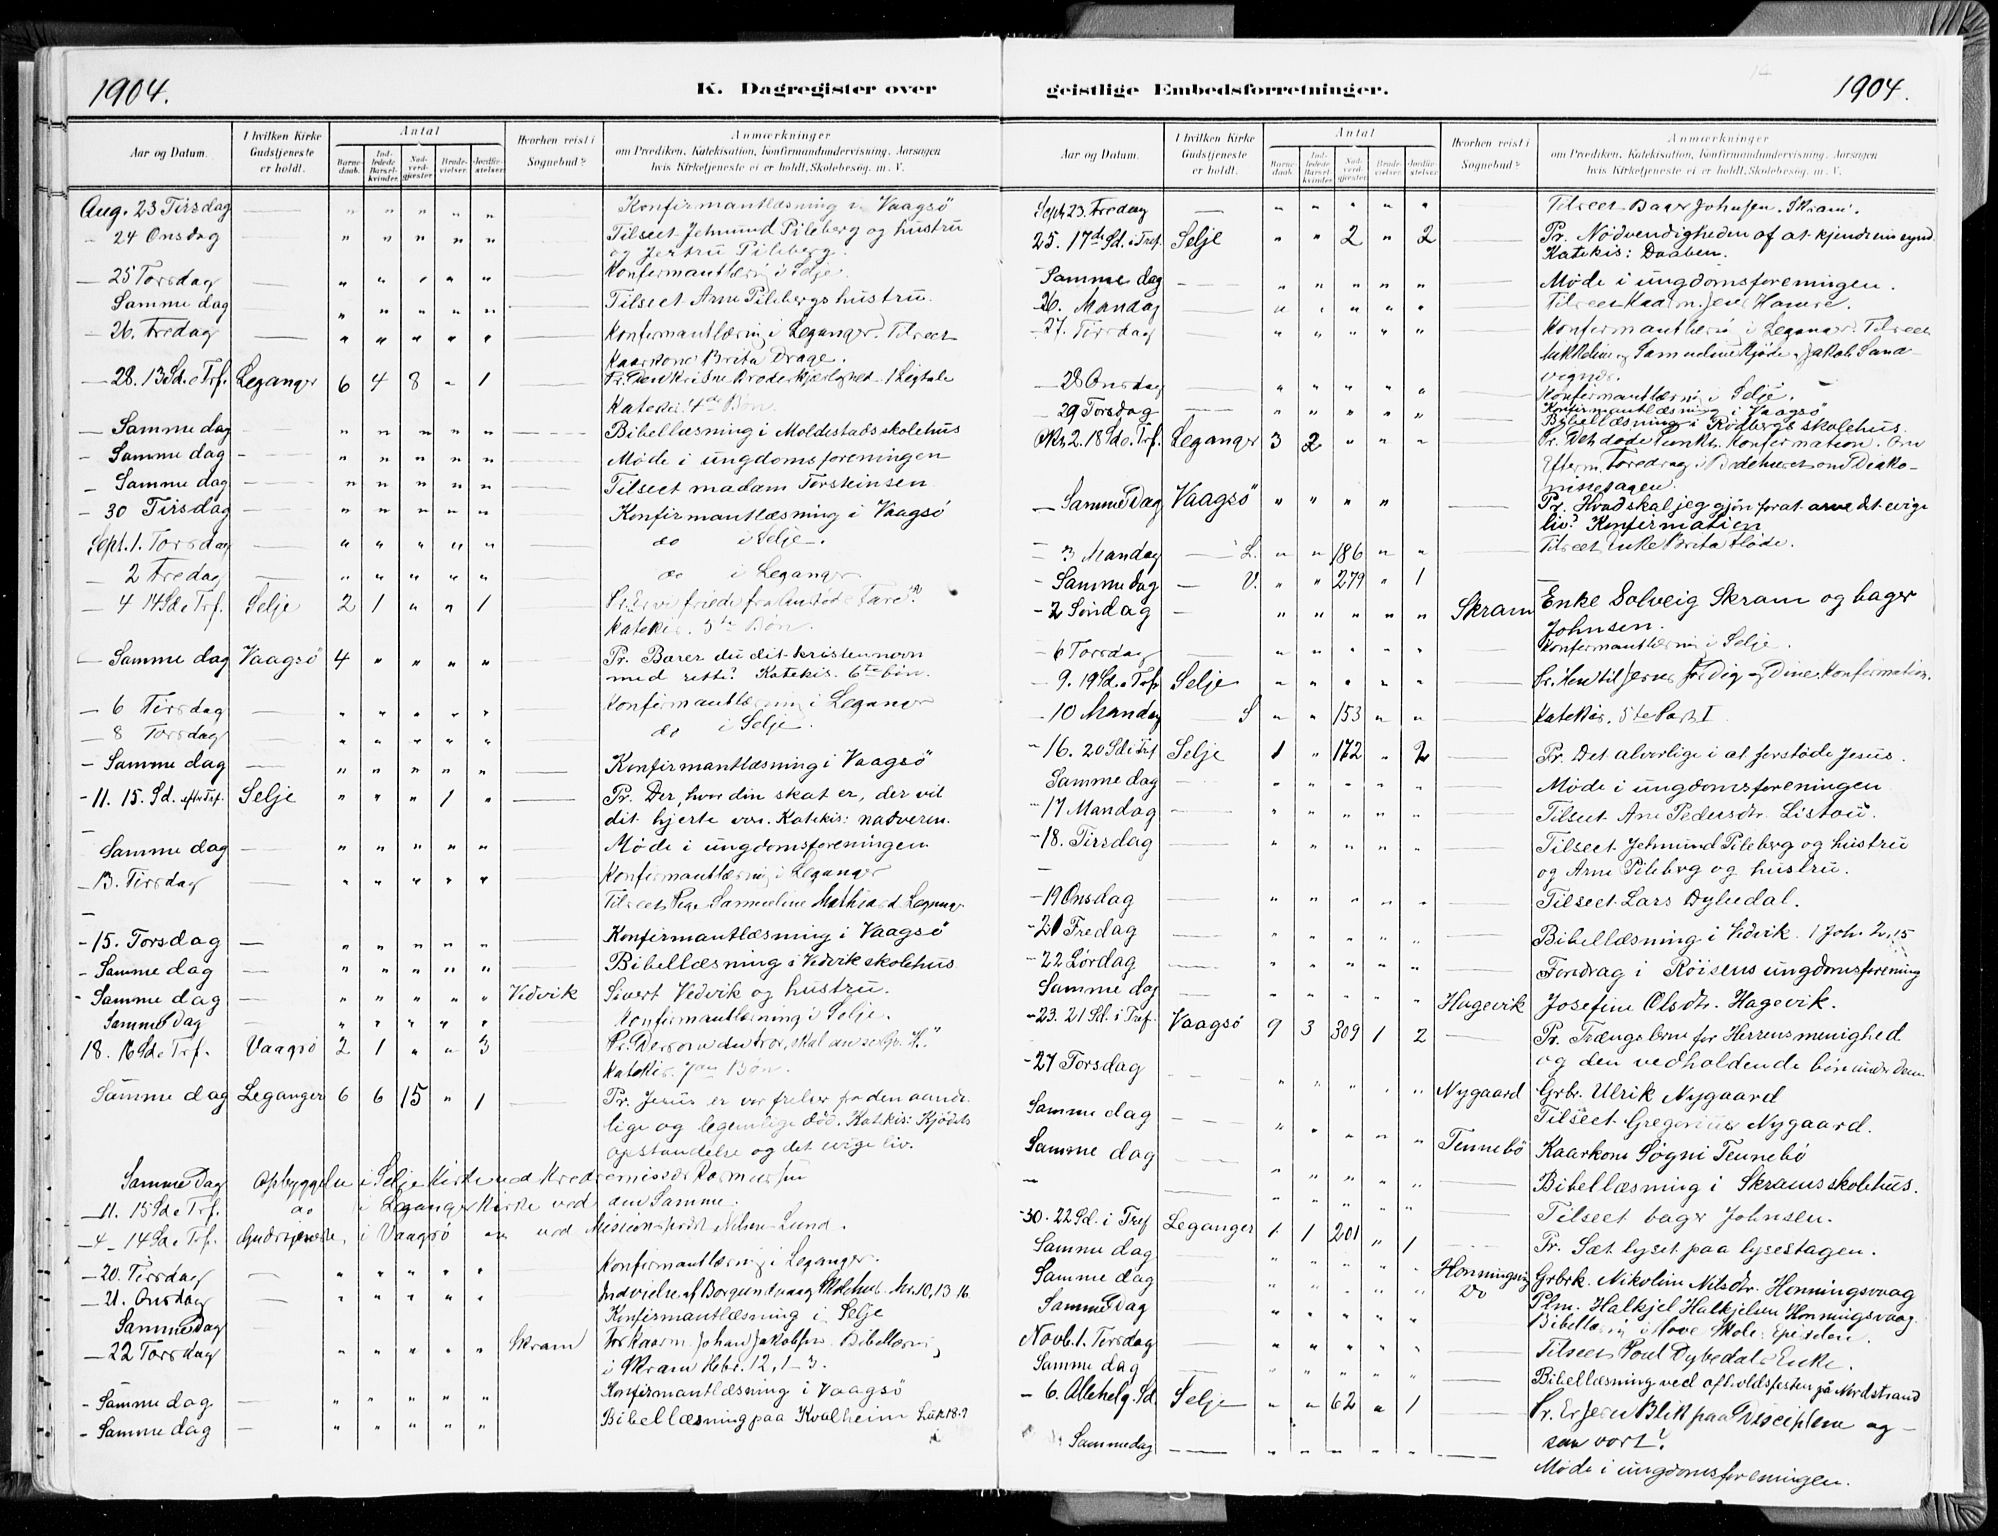 1904.
K. Dagregister over
Aar og Datum.
I hvilken Kirke Gudstjeneste er holdt.
Antal
Barnedaab.
Indledede Barselkvinder.
Nadverdgjester
Brudevielser.
Jordfæstelser.
Hvorhen reist i Sognebud?
Anmærkninger
om Prædiken, Katekisation, Konfirmandundervisning, Aarsagen
hvis Kirketjeneste ei er holdt, Skolebesøg m. V.
Aug. 23 Tirsdag — " " " " " — Konfirmantlæsning i Vaagsö
- 24 Onsdag — " " " " " — Tilseet Jetmund Pileberg og hustru
og Jertru Pileberg.
- 25 Torsdag — " " " " " — Konfirmantlæsning i Selje.
Samme dag — " " " " " — Tilseet Arne Pilebergs hustru.
- 26. Fredag — " " " " " — Konfirmantlæsning i Leganger. Tilseet
Kaarkone Brita Drage.
- 28. 13 Sd. e Trf. Leganger 6 4 8 " 1
Katekis. 4de Bøn.
- Samme dag — " " " " " — Bibellæsning i Moldestads skolehus
- Samme dag — " " " " " — Møde i ungdomsforeningen
- Samme dag — " " " " " — Tilseet madam Torsteinsen
- 30 Tirsdag — " " " " " — Konfirmantlæsning i Vaagsö
Sept. 1. Torsdag — " " " " " — do i Selje.
- 2 Fredag — " " " " " — do i Leganger
- 4 14 Sd e Trf. Selje 2 1 " " 1 — Pr. Er vi friede fra
Katekis. 5te Bøn.
- Samme dag Vaagsö 4 " " " " — Pr. Bærer du dit kristennavn
med rette? Katekis. 6te bøn.
- 6 Tirsdag — " " " " " — Konfirmantlæsning i Leganger
- 8 Torsdag — " " " " " — do i Selje.
- Samme dag — " " " " " — Konfirmantlæsning i Vaagsö
- 11. 15. Sd. efter Tref. Selje " " " 1 " — Pr. Der, hvor din skat er, der vil
dit hjerte vær. Katekis: nadveren.
Samme dag — " " " " " — Møde i ungdomsforeningen
- 13. Tirsdag — " " " " " — Konfirmantlæsning i Leganger
Tilseet Pige Samueline Leganger
- 15. Torsdag — " " " " " — Konfirmantlæsning i Vaagsö
- Samme dag — " " " " " — Bibellæsning i Vedvik skolehus
- Samme dag — " " " " " Vedvik Sivert Vedvik og hustru.
Samme dag — " " " " " — Konfirmantlæsning i Selje.
18. 16 Sd e Trf. Vaagsö 2 1 " " 3 — Pr. Dersom du tror, skal du se Gs. H."
Katekis. 7de Bøn.
Samme dag Leganger 6 6 15 " 1 — Pr. Jesus er vor frelser fra den aande-
lige og legemlige död. Katekis: Kjödets
opstandelse og det evige liv.
Samme Dag Opbyggelse i Selje Kirke ved
- 11. 15 Sd e Trf. do i Leganger Kirke ved den Samme.
- 4 - 14 Sd e Trf. Gudstjeneste i Vaagsö ved Missionsprest Nilsen-Lund.
- 20. Tirsdag — " " " " " — Konfirmantlæsning i Leganger.
- 21. Onsdag — " " " " " — Indvielse af Borgundvaag Skolehus. Mr. 10, 13-16
Samme Dag — Konfirmantlæsning i Selje
- 22 Torsdag — " " " " " Skram Kaarm. Johan Jakobsen. Bibellæsning
i Skram Hebr. 12, 1-3.
- Samme dag — " " " " " — Konfirmantlæsning i Vaagsö
- Samme dag — " " " " " — Bibellæsning paa Kvalheim Luk 18.9
geistlige Embedsforretninger.
1904.
Aar og Datum.
I hvilken Kirke Gudstjeneste er holdt.
Antal
Barnedaab.
Indledede Barselkvinder.
Nadverdgjester
Brudevielser.
Jordfæstelser.
Hvorhen reist i Sognebud?
Anmærkninger
om Prædiken, Katekisation, Konfirmandundervisning, Aarsagen
hvis Kirketjeneste ei er holdt, Skolebesøg m. V.
Sept 23. Fredag — " " " " " — Tilseet Bager Johnsen. Skram.
25. 17de Sd. i Tref. Selje " " 2 " 2 — Pr. Nödvendigheden af at kjende sin synd.
Katekis: Daaben.
Samme dag — " " " " " — Møde i ungdomsforeningen.
26. Mandag — " " " " " — Tilseet Kaarm. Jens Hamre.
- 27. Tirsdag — " " " " " — Konfirmantlæsning i Leganger. Tilseet
Mikkeline og Samueline Jakob Sand-
- 28 Onsdag — " " " " " — Konfirmantlæsning i Selje.
- 29 Torsdag — " " " " " — Konfirmantlæsning i Vaagsö
Bibellæsning i Rödbergs skolehus.
Okt. 2. 18 Sd e. Trf. Leganger 3 2 " " " — Konfirmation.
Efterm. Foredrag i Bedehuset om Diako-
nissesagen.
Samme Dag Vaagsö " " " " — Pr. Hvad skal jeg gjöre for at arve det evige
liv? Konfirmation
- 3 Mandag — L. " " 186 " " Tilseet Enke Brita Flöde.
- Samme dag — V. " " 279 " 1
- 2 Söndag — " " " " " Skram Enke Solveig Skram og bager
Johnsen.
- 6 Torsdag — " " " " " — Konfirmantlæsning i Selje.
- 9. 19 Sd. e Trf. Selje " " " " " — Pr. Hen til Jesus for Dig og Dine. Konfirmation.
- 10 Mandag S " " 153 " " — Katekis. 5te Part I
- 16. 20 Sd e Trf Selje 1 " 172 " 2 — Pr. Det alvorlige i at forstöde Jesus.
Samme dag — " " " " " — Møde i ungdomsforeningen
- 17 Mandag — " " " " " — Tilseet Ane Pedersdtr. Listou.
- 18. Tirsdag — " " " " " — Tilseet Jetmund Pileberg og hustru
og Arne Pileberg og hustru.
- 19 Onsdag — " " " " " — Tilseet Lars Dybedal.
- 21 Fredag — " " " " " — Bibellæsning i Vedvik. 1 Joh. 2, 15
- 22 Lördag — " " " " " — Foredrag i Röisens ungdomsforening
Samme dag — " " " " " Hagevik Josefine Olsdtr. Hagevik.
- 23. 21 Sd. i Tref. Vaagsö 9 3 309 1 2 — Pr. Trængslerne for Herrens menighed
og den vedholdende bön under dem.
- 27 Torsdag — " " " " " Nygaard Grbr. Ulrik Nygaard
Samme dag — " " " " " Tilseet Gregorius Nygaard.
Samme dag — " " " " " Tennebö Kaarkone Sögni Tennebö
Bibellæsning i Skrams skolehus.
Tilseet bager Johnsen.
- 30. 22 Sd. i Tref Leganger 1 1 201 " 1 — Pr. Sæt lyset paa lysestagen.
Samme dag — " " " " " Honningsvaag Grbrk. Nikoline Nilsdtr. Honningsvaag
Samme dag — " " " " " Do Plm. Halkjel Halkjelsen Honningsvaag
Samme Dag — " " " " " — Bibellæsning i Hove Skole. Epistelen.
Novb. 1. Tirsdag — " " " " " — Tilseet Poul Dybedals Enke.
Samme dag — " " " " " — Bibellæsning ved afholdsfesten på Nordstrand
- 6. Allehelg. Sd. Selje " " 62 " 1 — Pr. Et Jesu Blik paa Disciplene og —
saa vort!
Samme dag — " " " " " — Møde i ungdomsforeningen.